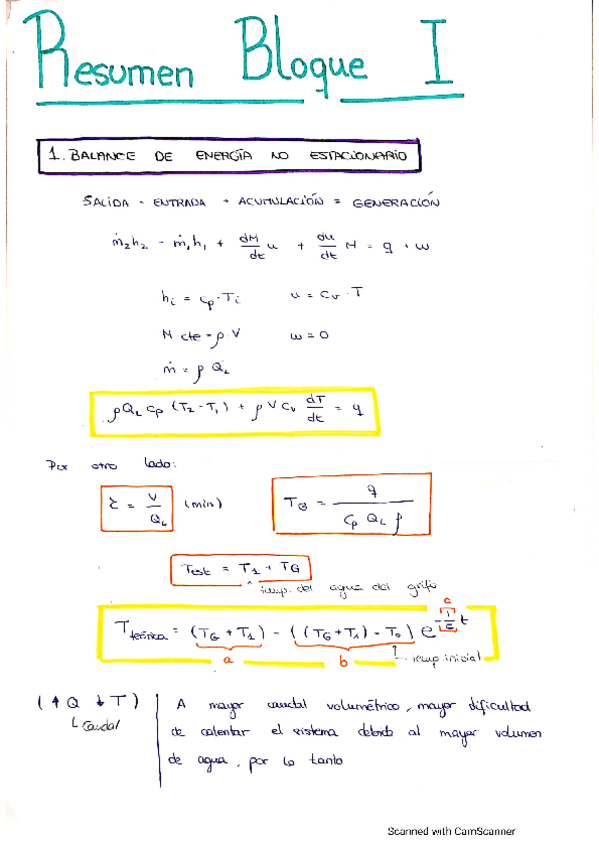 Resumen Bloque I
1. BALANCE DE ENERGÍA NO ESTACIONARIO
SALIDA - ENTRADA + ACUMULACIÓN = GENERACIÓN
ṁ₂h₂ - ṁ₁h₁ + dM/dt u + du/dt M = q + w
hᵢ = cp · Tᵢ u = Cv · T
M cte = ρ · V w = 0
ṁ = ρ Q_L
ρQ_L cp (T₂ - T₁) + ρ V Cv dT/dt = q
Por otro lado:
τ = V/Q_L (min) T_G = q/(Cp Q_L ρ)
Test = T₁ + TG
temp. del agua del grifo
T teórica = (T_G + T₁) - ((T_G + T₁) - T₀) e^(-1/τ t)
a b c
temp. inicial
(↑ Q ↓ T) A mayor caudal volumétrico, mayor dificultad
Caudal de calentar el sistema debido al mayor volumen
de agua, por lo tanto
Scanned with CamScanner